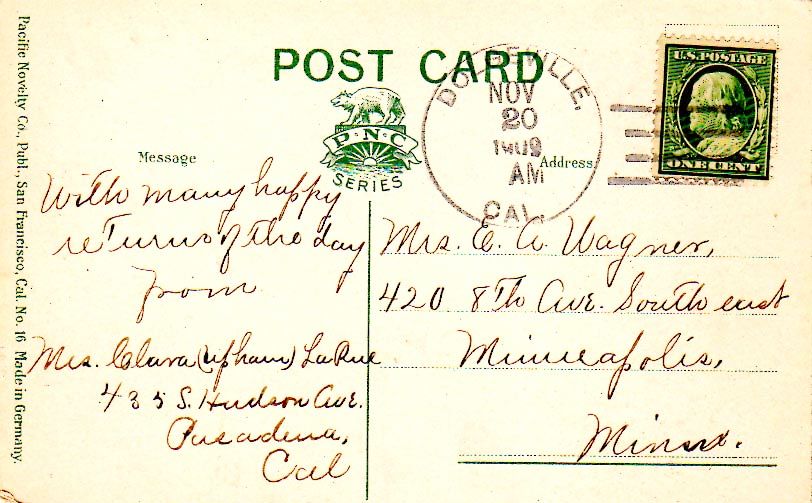 POST CARD
P-N-C
SERIES
Message
Address
NOV
20
1909
AM
CAL.
U.S. POSTAGE
ONE CENT
With many happy
returns of the day
from
Mrs. Clara (Upham) LaRue
435 S. Hudson Ave.
Pasadena,
Cal
Mrs. E. A. Wagner,
420 8Th Ave. South east
Minneapolis,
Minn.
Pacific Novelty Co., Publ., San Francisco, Cal. No. 16 Made in Germany.